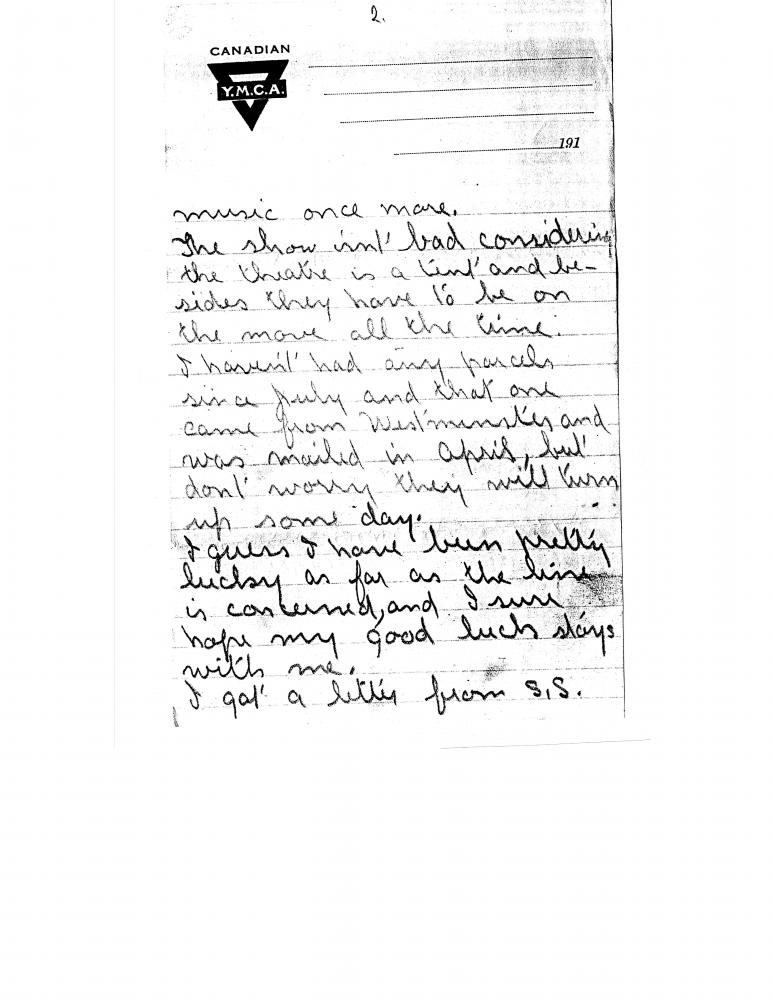 2.
CANADIAN
Y.M.C.A.
191
music once more.
The show isnt' bad considering
the theatre is a tent and be-
sides they have to be on
the move all the time.
I havent' had any parcels
since July and that one
came from Westminster and
was mailed in April, but
dont' worry they will turn
up some day.
I guess I have been pretty
lucky as far as the line
is concerned, and I sure
hope my good luck stays
with me.
I got a letter from S.S.